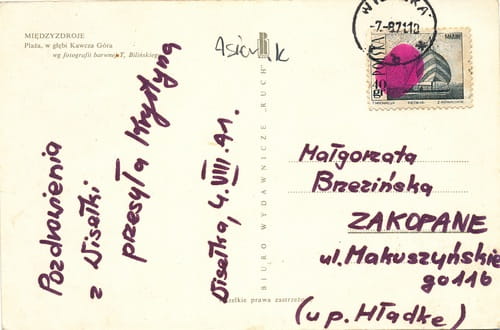 MIĘDZYZDROJE
Plaża, w głębi Kawcza Góra
wg fotografii barwnej T. Bilińskiej
Pozdrowienia
z Wisełki
przesyła Krystyna
Wisełka, 4.VIII.71.
BIURO WYDAWNICZE „RUCH”
wszelkie prawa zastrzeżone
POLSKA
40 gr
Małgorzata
Brzezińska
ZAKOPANE
ul. Makuszyńskiego 11b
(u p. Hładkę)